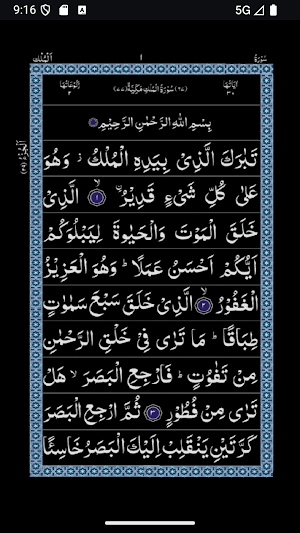 9:16 5G
سُوْرَةُ ١ اَلْمُلْك
اٰيَاتُهَا ٣٠ (٦٧) سُوْرَةُ الْمُلْكِ مَكِّيَّةٌ (٧٧) رُكُوْعَاتُهَا ٢
بِسْمِ اللّٰهِ الرَّحْمٰنِ الرَّحِيْمِ
تَبٰرَكَ الَّذِیْ بِیَدِهِ الْمُلْكُ ؗ وَهُوَ
عَلٰی كُلِّ شَیْءٍ قَدِیْرُ ۙ ۟ ١ الَّذِیْ
خَلَقَ الْمَوْتَ وَالْحَیٰوةَ لِیَبْلُوَكُمْ
اَیُّكُمْ اَحْسَنُ عَمَلًا ؕ وَهُوَ الْعَزِیْزُ
الْغَفُوْرُ ۙ ٢ الَّذِیْ خَلَقَ سَبْعَ سَمٰوٰتٍ
طِبَاقًا ؕ مَا تَرٰی فِیْ خَلْقِ الرَّحْمٰنِ
مِنْ تَفٰوُتٍ ؕ فَارْجِعِ الْبَصَرَ ۙ هَلْ
تَرٰی مِنْ فُطُوْرٍ ٣ ثُمَّ ارْجِعِ الْبَصَرَ
كَرَّتَیْنِ یَنْقَلِبْ اِلَیْكَ الْبَصَرُ خَاسِئًا